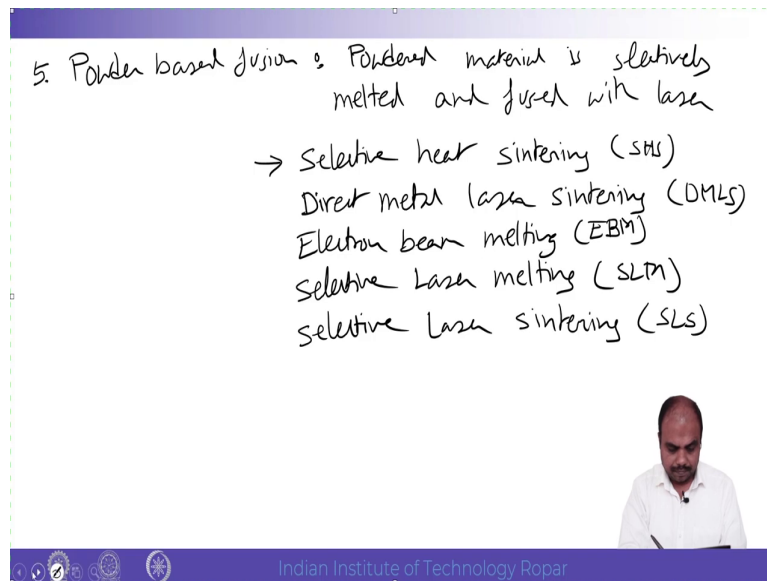 5. Powder based fusion : Powdered material is slectively
melted and fused with laser
→ Selective heat sintering (SHS)
Direct metal laser sintering (DMLS)
Electron beam melting (EBM)
Selective Laser melting (SLM)
Selective Laser sintering (SLS)
Indian Institute of Technology Ropar